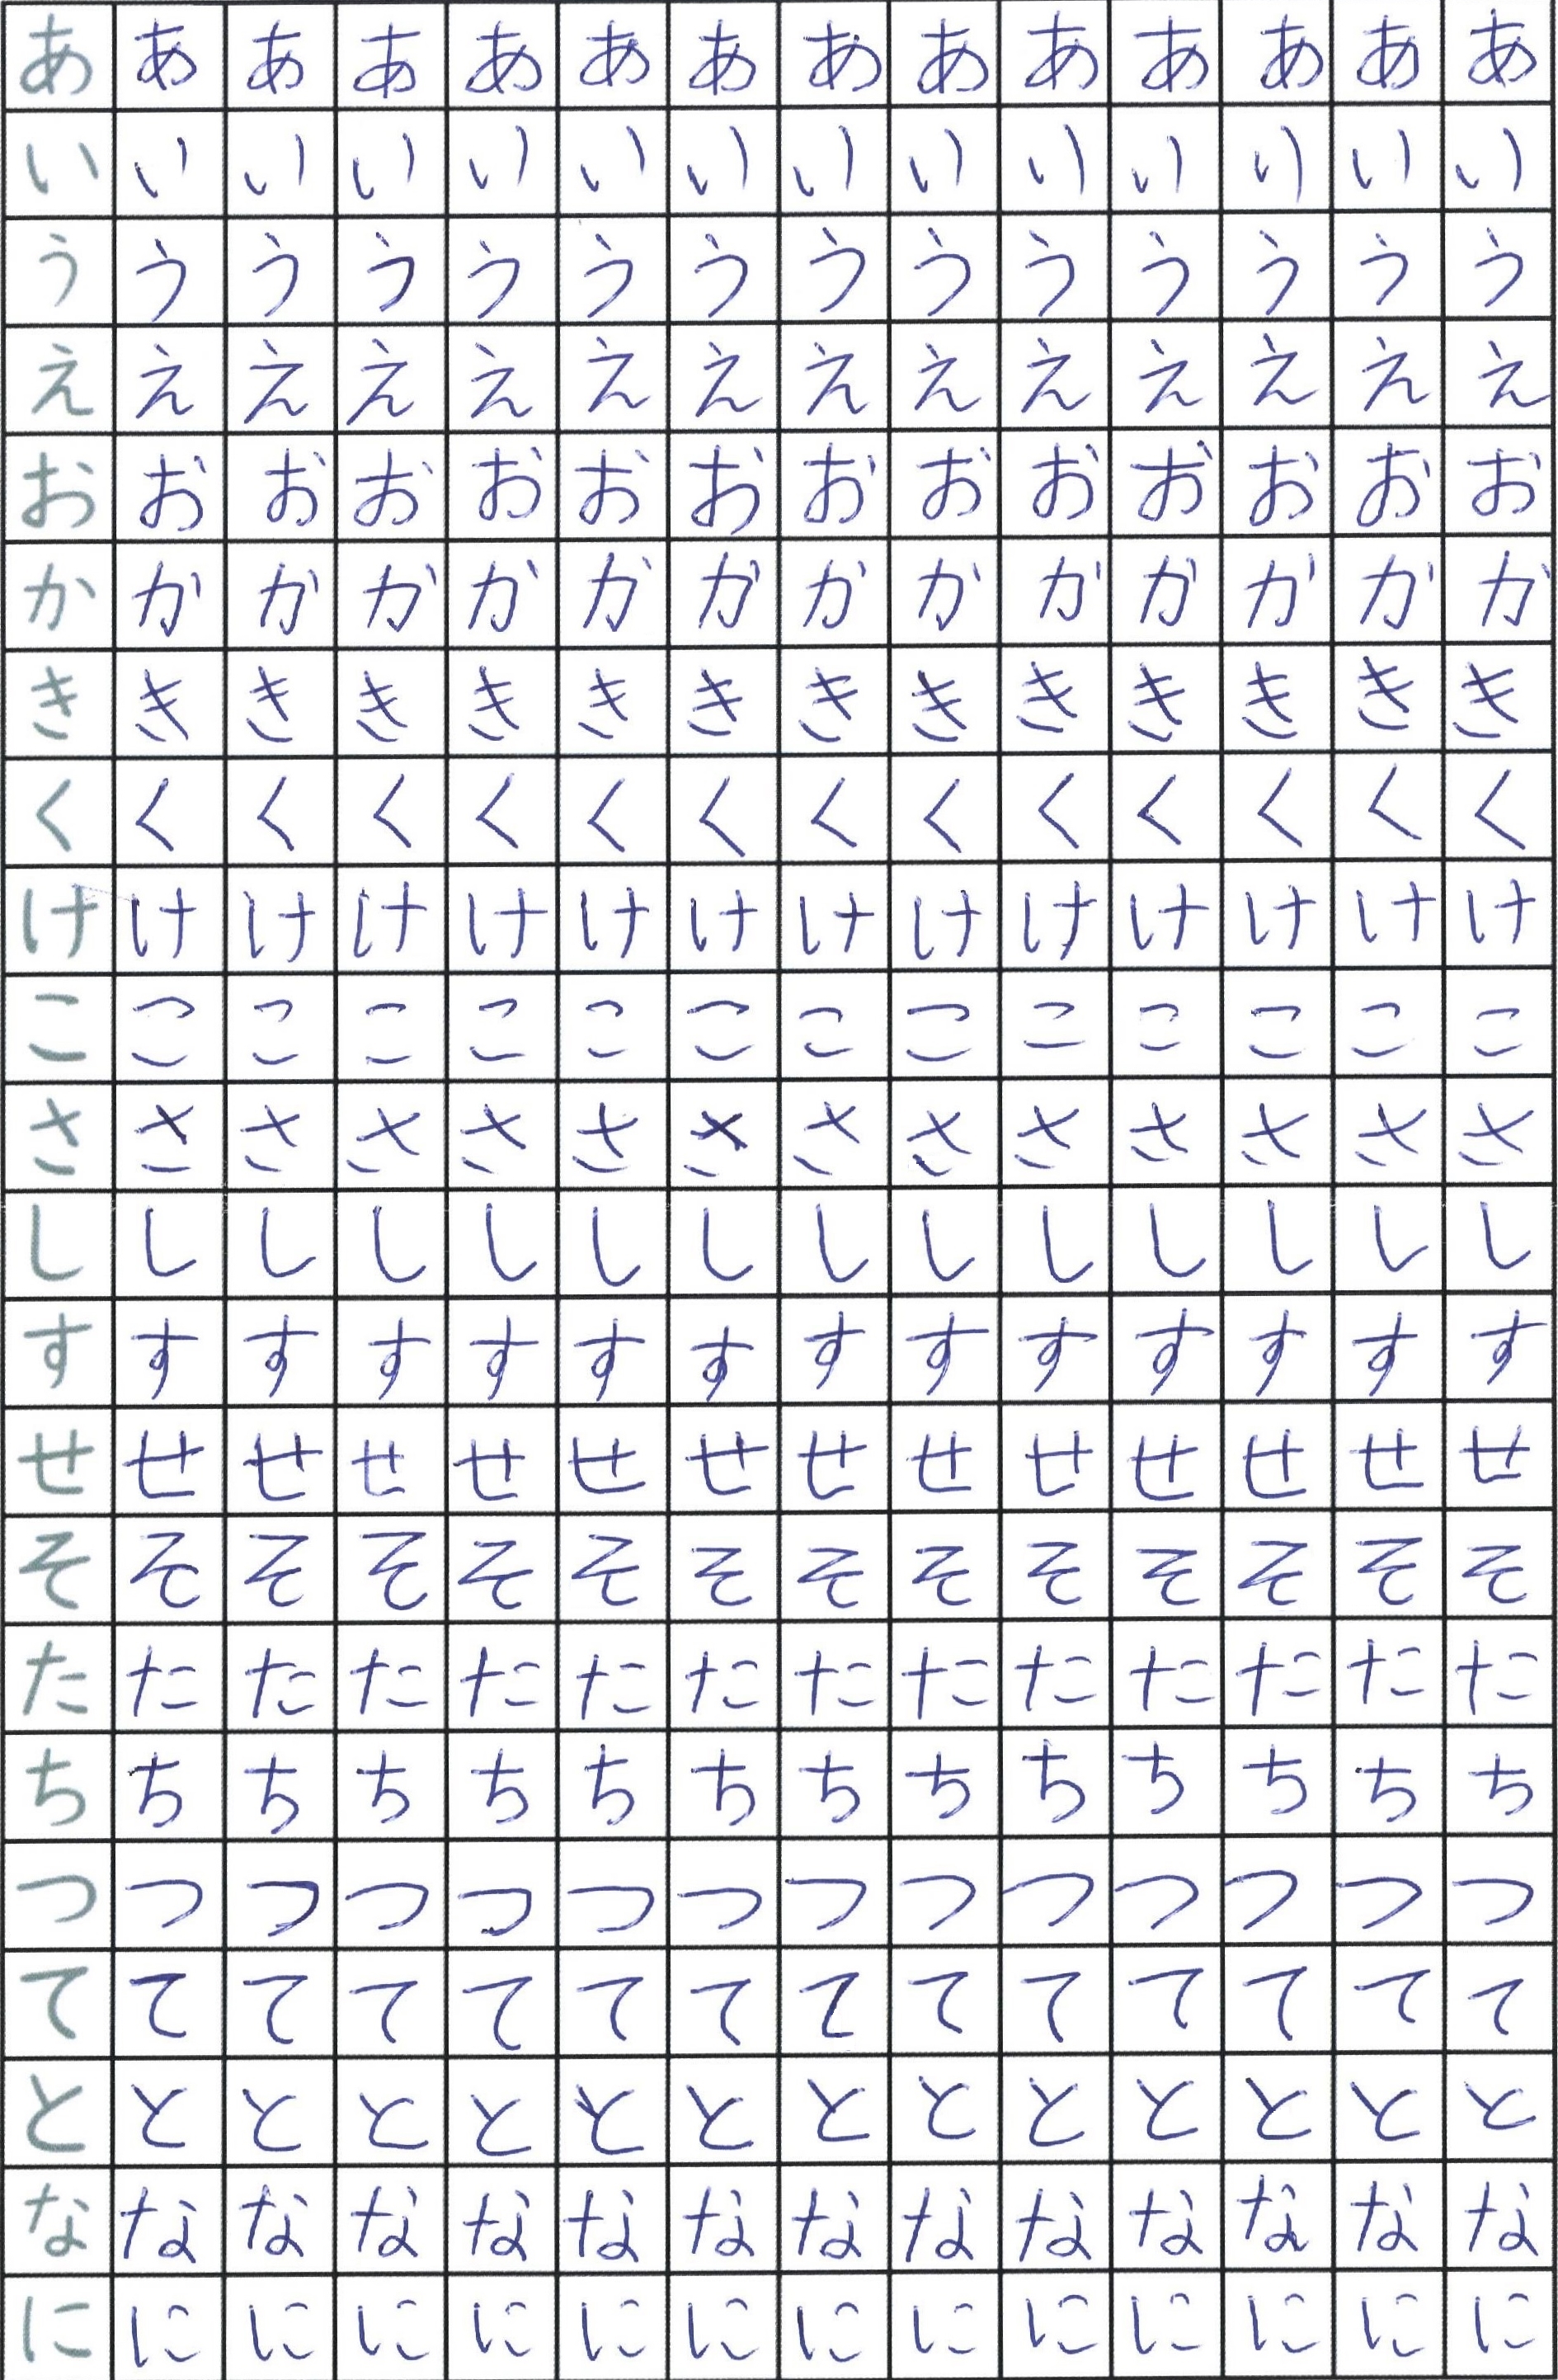 あ あ あ あ あ あ あ あ あ あ あ あ あ あ
い い い い い い い い い い い い い い
う う う う う う う う う う う う う う
え え え え え え え え え え え え え え
お お お お お お お お お お お お お お
か か か か か か か か か か か か か か
き き き き き き き き き き き き き き
く く く く く く く く く く く く く く
け け け け け け け け け け け け け け
こ こ こ こ こ こ こ こ こ こ こ こ こ こ
さ さ さ さ さ さ さ さ さ さ さ さ さ さ
し し し し し し し し し し し し し し
す す す す す す す す す す す す す す
せ せ せ せ せ せ せ せ せ せ せ せ せ せ
そ そ そ そ そ そ そ そ そ そ そ そ そ そ
た た た た た た た た た た た た た た
ち ち ち ち ち ち ち ち ち ち ち ち ち ち
つ つ つ つ つ つ つ つ つ つ つ つ つ つ
て て て て て て て て て て て て て て
と と と と と と と と と と と と と と
な な な な な な な な な な な な な な
に に に に に に に に に に に に に に